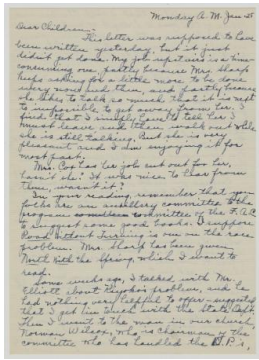 Monday A.M. Jan 25
Dear Children:-
This letter was supposed to have
been written yesterday, but it just
didnt get done. My job upstairs is a time-
consuming one, partly because Mrs. Sharp
keeps asking for a little more to be done
every now and then, and partly because
she likes to talk so much that it is next
to impossible to get away from her. I
find that I simply have to tell her I
must leave and then walk out while
she is still talking. But she is very
pleasant and I am enjoying it for
most part.
Mrs. Cox has her job cut out for her,
hasn't she? It was nice to hear from
them, wasn't it?
In your reading, remember that you
folks are an auxiliary committee to the
program committee of the F.A.C.
to suggest some good books. I suppose
Road Without Turning is one on the race
problem. Mrs. Sharp has been given
North With the Spring, which I want to
read.
Some weeks ago, I talked with Mr.
Elliott about problem, and he
had nothing very helpful to offer - suggested
that I get in touch with the State Dept.
Then I went to the man in our church,
Norman Wilson, who is chairman of the
committee who has handled the D.P.'s,